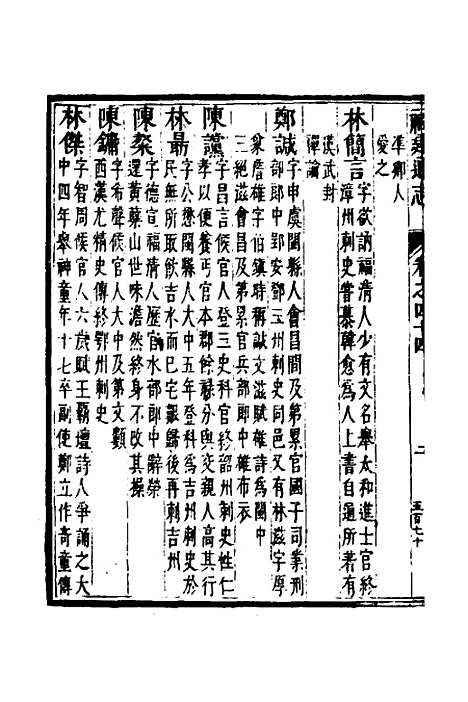 福建通志
卷之四十四
二
五百七十
準鄉人
愛之
林簡言字欲訥福清人少有文名舉太和進士官終
漳州刺史嘗慕韓愈為人上書自通所著有
漢武封
禪論
鄭諴字申虞閩縣人會昌間及第累官國子司業刑
部郎中郢安鄧三州刺史同邑又有林滋字原
象詹雄字伯鎮時稱諴文滋賦雄詩為閩中
三絕滋會昌及第累官兵部郎中雄布衣
陳讜字昌言侯官人登三史科官終韶州刺史性仁
孝以便養丐官本郡餘祿分與交親人高其行
林勗字公懋閩縣人大中五年登科為吉州刺史於
民無所取飲吉水而已宅毀歸後再刺吉州
陳燦字德宣福清人歷官水部郎中辭榮
還黃蘗山世味澹然終身不改其操
陳鏞字希聲侯官人大中及第文類
西漢尤精史傳終鄂州刺史
林傑字智周侯官人六歲賦王霸壇詩人爭誦之大
中四年舉神童年十七卒副使鄭立作奇童傳